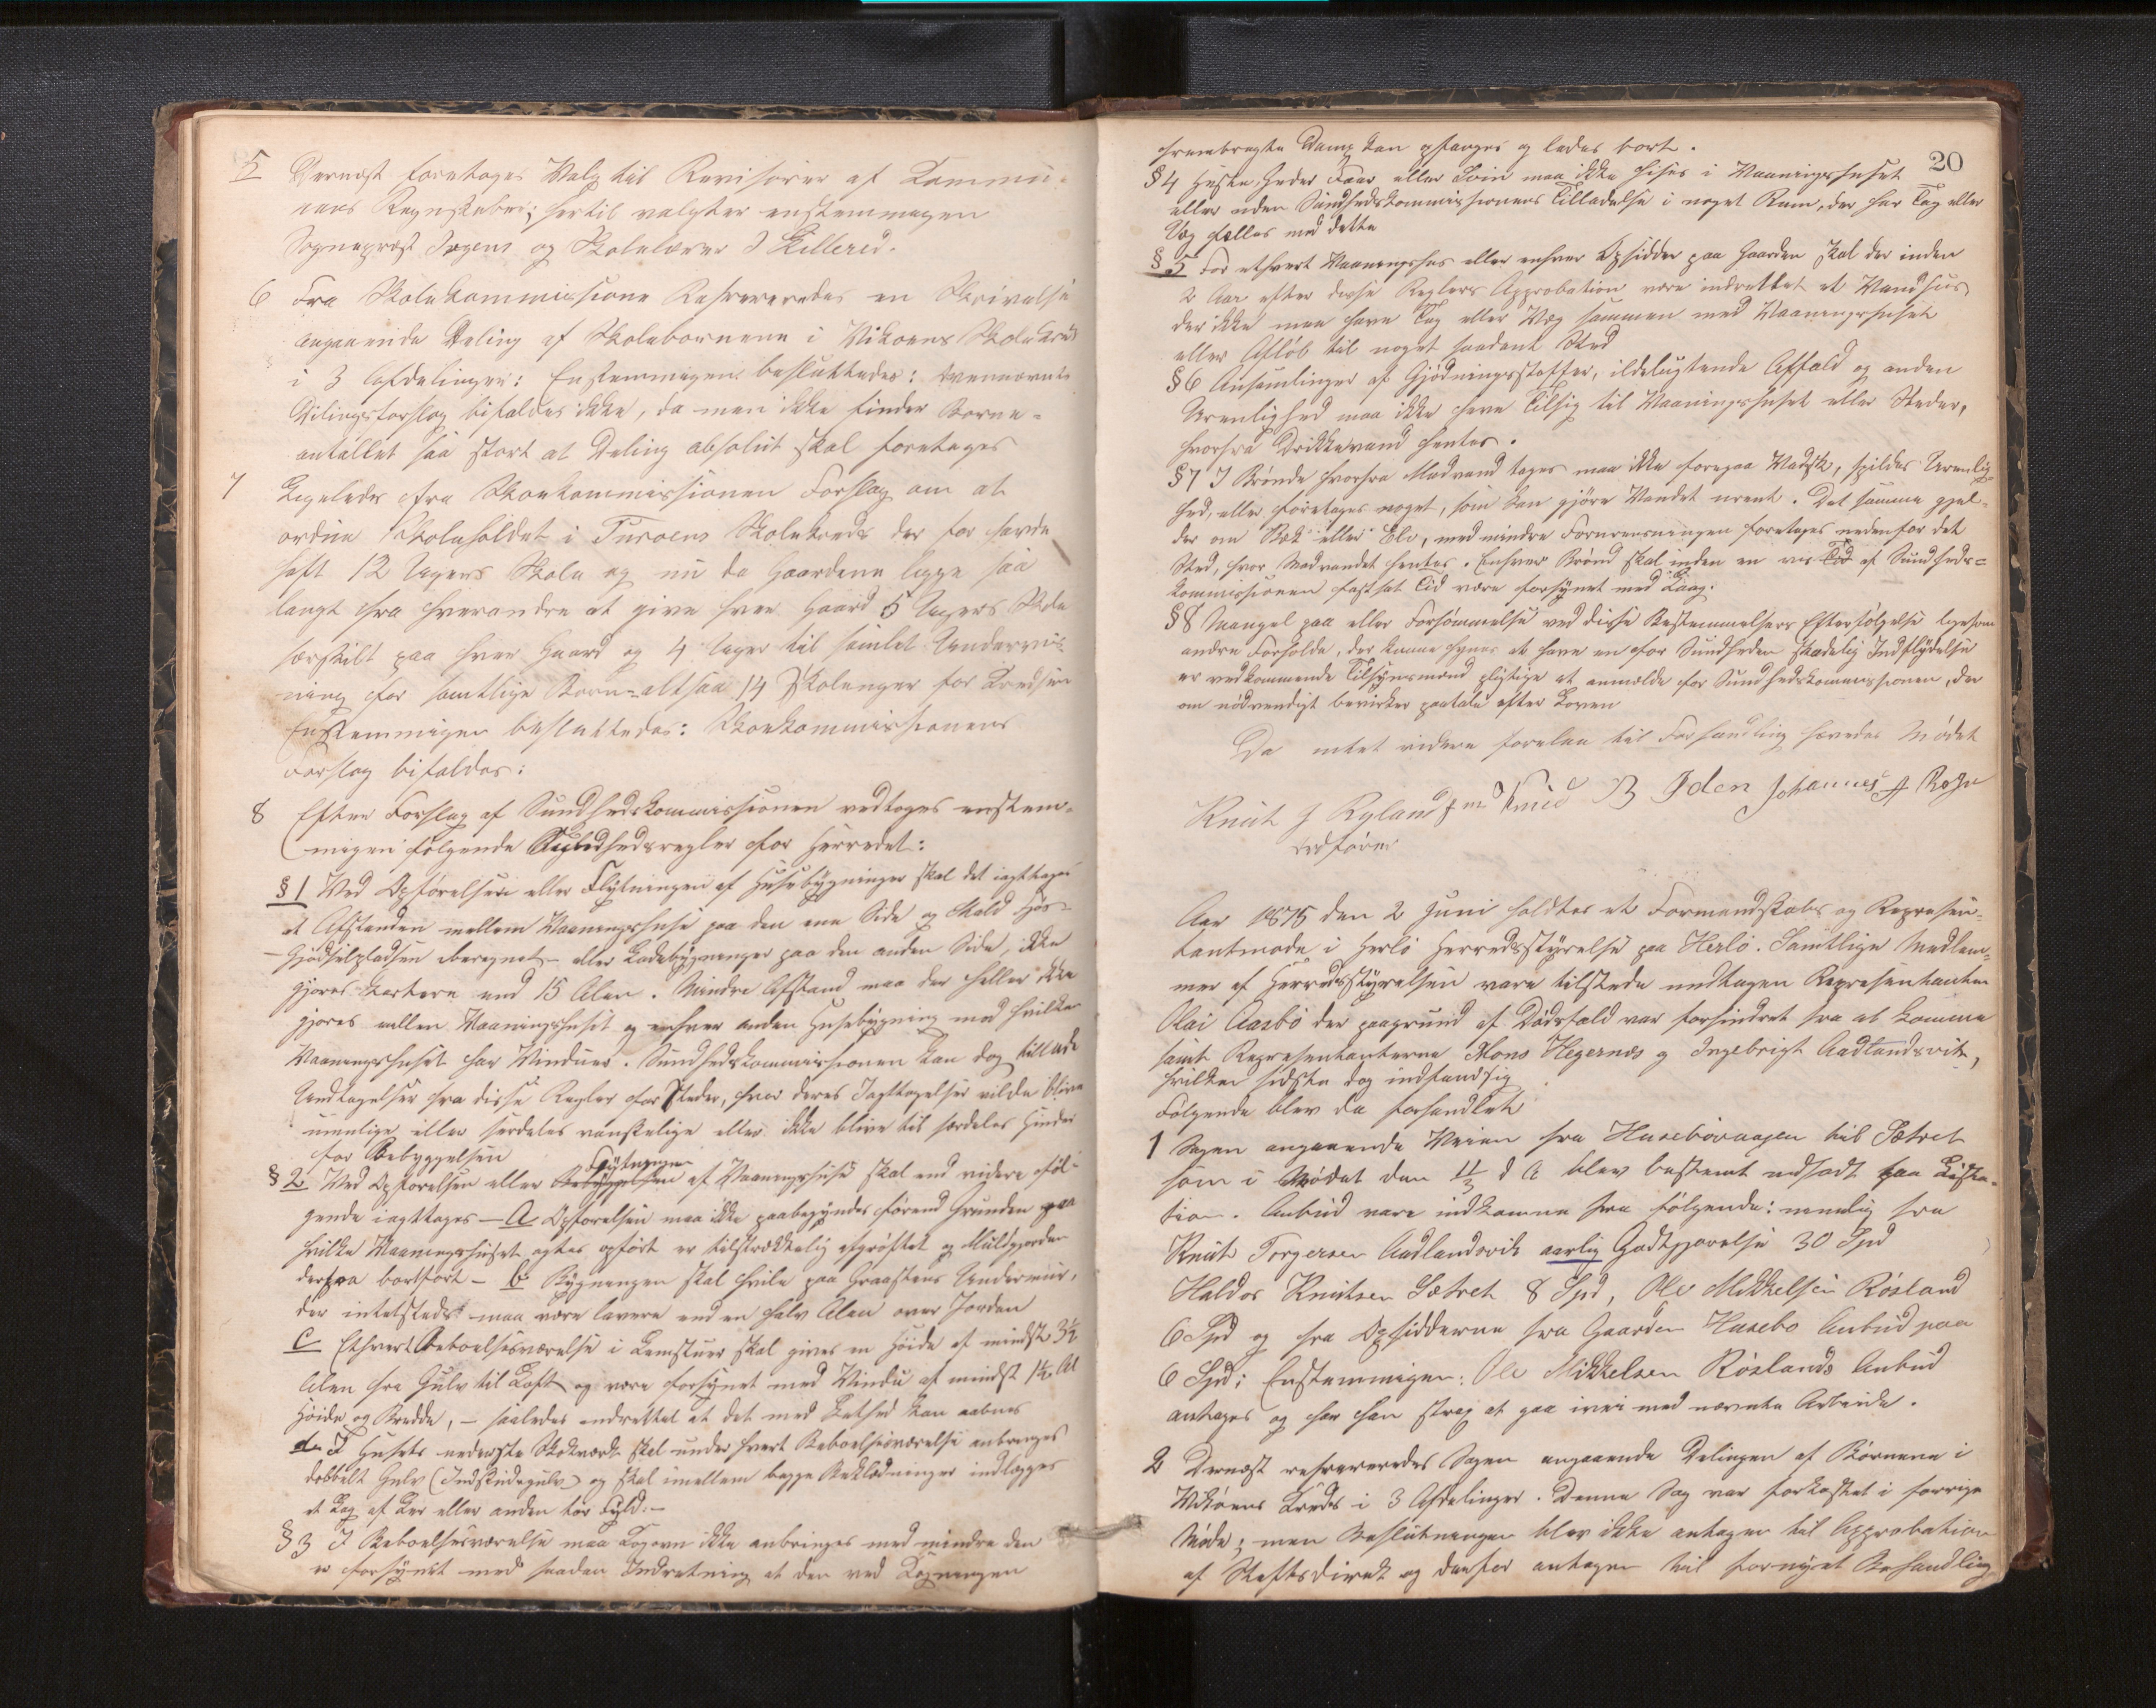 5 Dernæst foretoges Valg til Revisorer af Kommu-
nens Regnskaber; hertil valgtes enstemmigen
Sognepræst Irgens og Skolelærer J Killered.
6 Fra Skolekommissionen Refereredes en Skrivelse
angaaende Deling af Skolebørnene i Vikøens Skolekreds
i 3 Afdelinger: Enstemmigen besluttedes: Ovennævnte
Delingsforslag bifaldes ikke, da man ikke finder Børne-
antallet saa stort at Deling absolut skal foretages
7 Ligeledes fra Skolekommissionen Forslag om at
ordne Skoleholdet i Turøens Skolekreds der før havde
haft 12 Ugers Skole og nu da Gaardene ligge saa
langt fra hverandre at give hver Gaard 5 Ugers Skole
særskilt paa hver Gaard og 4 Uger til samlet Undervis-
ning for samtlige Børn - altsaa 14 Skoleuger for Kredsen
Enstemmigen besluttedes: Skolekommissionens
Forslag bifaldes:
8 Efter Forslag af Sundhedskommissionen vedtoges enstem-
migen følgende Sundhedsregler for Herredet:
§ 1 Ved Opførelsen eller Flytningen af Husebygninger skal det iagttages
at Afstanden mellem Vaaningshuse paa den ene Side og Stald Fjøs
- Gjødselpladsen iberegnet - eller Ladebygninger paa den anden Side, ikke
gjøres kortere end 15 Alen. Mindre Afstand maa der heller ikke
gjøres mellem Vaaningshuset og enhver anden Husebygning mod hvilken
Vaaningshuset har Vinduer. Sundhedskommissionen kan dog tillade
Undtagelser fra disse Regler for Steder, hvor deres Iagttagelser vilde blive
umulige eller særdeles vanskelige eller ikke blive til særdeles Hinder
for Bebyggelsen
Flytningen
§ 2 Ved Opførelsen eller Bebyggelsen af Vaaningshuse skal end videre føl-
gende iagttages - a Opførelsen maa ikke paabegyndes førend Grunden paa
hvilke Vaaningshuset agtes opført er tilstrækkelig afgrøftet og Muldjorden
derfra bortført - b. Bygningen skal hvile paa Graastens Undermur,
der intetsteds maa være lavere end en halv Alen over Jorden
c Ethvert Beboelsesværelse i Lemstuer skal gives en Høide af mindst 3½
Alen fra Gulv til Loft og være forsynet med Vindu af mindst 1½ Al
Høide og Bredde, - saaledes indrettet at det med Lethed kan aabnes
d. I Husets nederste Stokværk skal under hvert Beboelsesværelse anbringes
dobbelt Gulv (Indskudsgulv) og skal imellem begge Beklædninger indlægges
et Lag af Ler eller anden tør Fyld. -
§ 3 I Beboelsesværelse maa Kogeovn ikke anbringes med mindre den
er forsynet med saadan Indretning at den ved Kogningen
20
frembragte Damp kan opfanges og ledes bort.
§ 4 Heste, Geder Faar eller Svin maa ikke huses i Vaaningshuset
eller uden Sundhedskommissionens Tilladelse i noget Rum, der har Tag eller
Væg fælles med dette
§ 5 For ethvert Vaaningshus eller enhver Opsidder paa Gaarden skal der inden
2 Aar efter disse Reglers Approbation være indrettet et Vandhus
der ikke maa have Tag eller Væg sammen med Vaaningshuset
eller Afløb til noget saadant Sted
§ 6 Ansamlinger af Gjødningsstoffer, ildelugtende Affald og anden
Urenlighed maa ikke have Tilsig til Vaaningshuset eller Steder,
hvorfra Drikkevand hentes.
§ 7 I Brønde hvorfra Madvand tages maa ikke foregaa Vadsk, spildes Urenlig-
hed, eller foretages noget, som kan gjøre Vandet urent. Det samme gjæl-
der om Bæk eller Elv, med mindre Forurensningen foretages nedenfor det
Sted, hvor Madvandet hentes. Enhver Brønd skal inden en vis Tid af Sundheds-
kommissionen fastsat Tid være forsynet med Laag.
§ 8 Mangel paa eller Forsømmelse ved disse Bestemmelsers Efterfølgelse ligesom
andre Forholde, der kunne synes at have en for Sundheden skadelig Indflydelse
er vedkommende Tilsynsmænd pligtige at anmelde for Sundhedskommissionen, der
om nødvendigt bevirker paatale efter Loven
Da intet videre forelaa til Forhandling hævedes Mødet
Knut J Ryland Knud B Iden Johannes A
Ordfører
Aar 1875 den 2 Juni holdtes et Formandskabs og Represen-
tantmøde i Herlø Herredsstyrelse paa Herlø. Samtlige Medlem-
mer af Herredsstyrelsen vare tilstede undtagen Representanten
Olai Aasbø der paagrund af Dødsfald var forhindret fra at komme
samt Representanterne Mons Hegernæs og Ingebrigt Aadlandsvik,
hvilken sidste dog indfandt sig
Følgende blev da forhandlet
1 Sagen angaaende Veien fra Husebøvaagen til Sætret
som i Mødet den 11/3 d A blev bestemt udsadt paa Lista-
tion. Anbud vare indkomne fra følgende: nemlig fra
Knut Torgersen Aadlandsvik aarlig Godtgjørelse 30 Spd
Haldor Knutsen Sætret 8 Spd, Ole Mikkelsen Røsland
6 Spd og fra Opsidderne fra Gaarden Husebø Anbud paa
6 Spd; Enstemmigen: Ole Mikkelsen Røslands Anbud
antages og har han strax at gaa iver med nævnte Arbeide.
2 Dernæst refereredes Sagen angaaende Delingen af Børnene i
Vikøens Kreds i 3 Afdelinger. Denne Sag var forkastet i forrige
Møde; men Beslutningen blev ikke antagen til Approbation
af Stiftsdirek og derfor antagen til fornyet Behandling